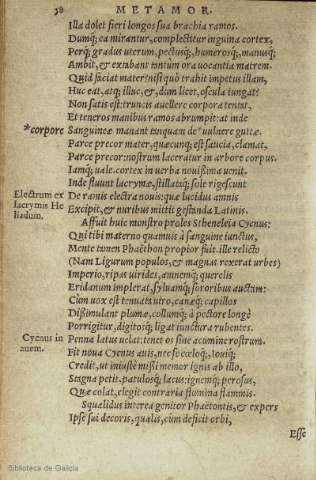 58 METAMOR.
Illa dolet fieri longos sua brachia ramos.
Dumq; ea mirantur, complectitur inguina cortex,
Perq; gradus uterum, pectusq;, humerosq;, manusq;
Ambit, & extabant tantùm ora uocantia matrem.
Quid faciat mater? nisi quò trahit impetus illam,
Huc eat, atq; illuc, &, dum licet, oscula iungat?
Non satis est: truncis auellere corpora tentat,
Et teneros manibus ramos abrumpit: at inde
*corpore Sanguineæ manant tanquam de *uulnere guttæ.
Parce precor mater, quæcunq; est saucia, clamat,
Parce precor: nostrum laceratur in arbore corpus.
Iamq; uale. cortex in uerba nouissima uenit.
Inde fluunt lacrymæ, stillataq; sole rigescunt
Electrum ex De ramis electra nouis: quæ lucidus amnis
lacrymis He Excipit, & nuribus mittit gestanda Latinis.
liadum. Affuit huic monstro proles Stheneleia Cycnus:
Qui tibi materno quamuis à sanguine iunctus,
Mente tamen Phaëthon propior fuit. ille relicto
(Nam Ligurum populos, & magnas rexerat urbes)
Imperio, ripas uirides, amnemq; querelis
Eridanum implerat, syluamq; sororibus auctam:
Cùm uox est tenuata uiro, canæq; capillos
Dissimulant plumæ, collumq; à pectore longè
Porrigitur, digitosq; ligat iunctura rubentes.
Cycnus in Penna latus uelat: tenet os sine acumine rostrum.
auem. Fit noua Cycnus auis, nec se cœloq;, Iouiq;
Credit, ut iniustè missi memor ignis ab illo,
Stagna petit. patulosq; lacus: ignemq; perosus,
Quæ colat, elegit contraria flumina flammis.
Squalidus interea genitor Phaëtontis, & expers
Ipse sui decoris, qualis, cùm deficit orbi,
Esse
Biblioteca de Galicia